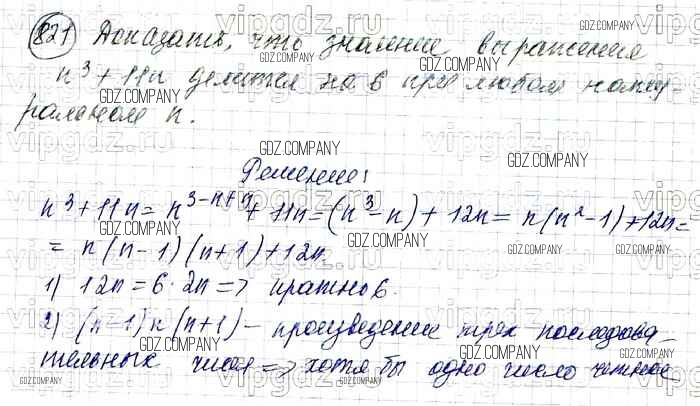 821 Доказать, что значение выражения
n³ + 11n делится на 6 при любом нату-
ральном n.
Решение:
n³ + 11n = n³⁻ⁿ⁺ⁿ + 11n = (n³ - n) + 12n = n(n² - 1) + 12n =
= n(n - 1)(n + 1) + 12n
1) 12n = 6 · 2n => кратно 6.
2) (n-1)n(n+1) - произведение трех последова-
тельных чисел => хотя бы одно число четное